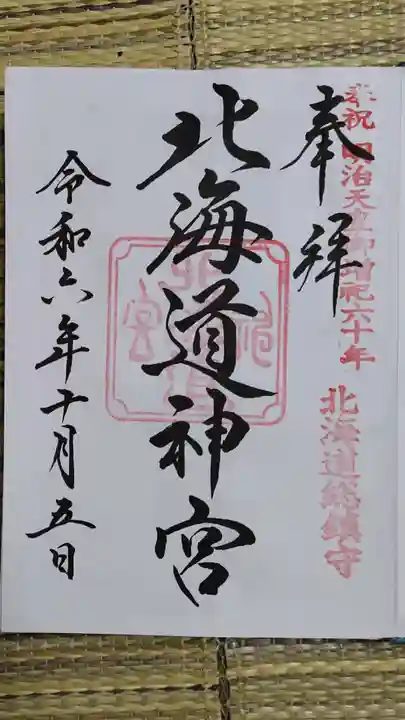 奉祝 明治天皇御増祀六十年
北海道総鎮守
奉拝
北海道神宮
令和六年十月五日